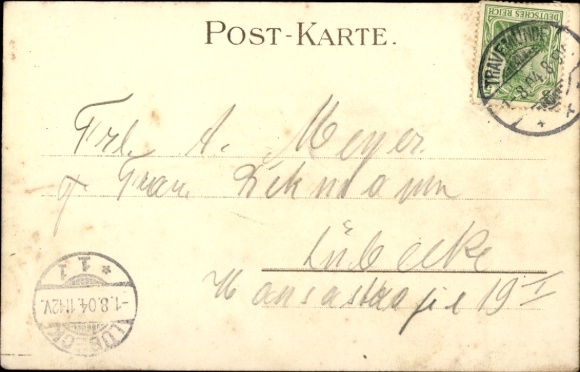 POST-KARTE.
DEUTSCHES REICH
TRAVEMÜNDE
8.04. 8-9
Frl. A. Meyer
Frau Lehmann
Lübecke
Hansastraße 19 I
* 1 1
-1.8.04.11-12V.
LÜBECK